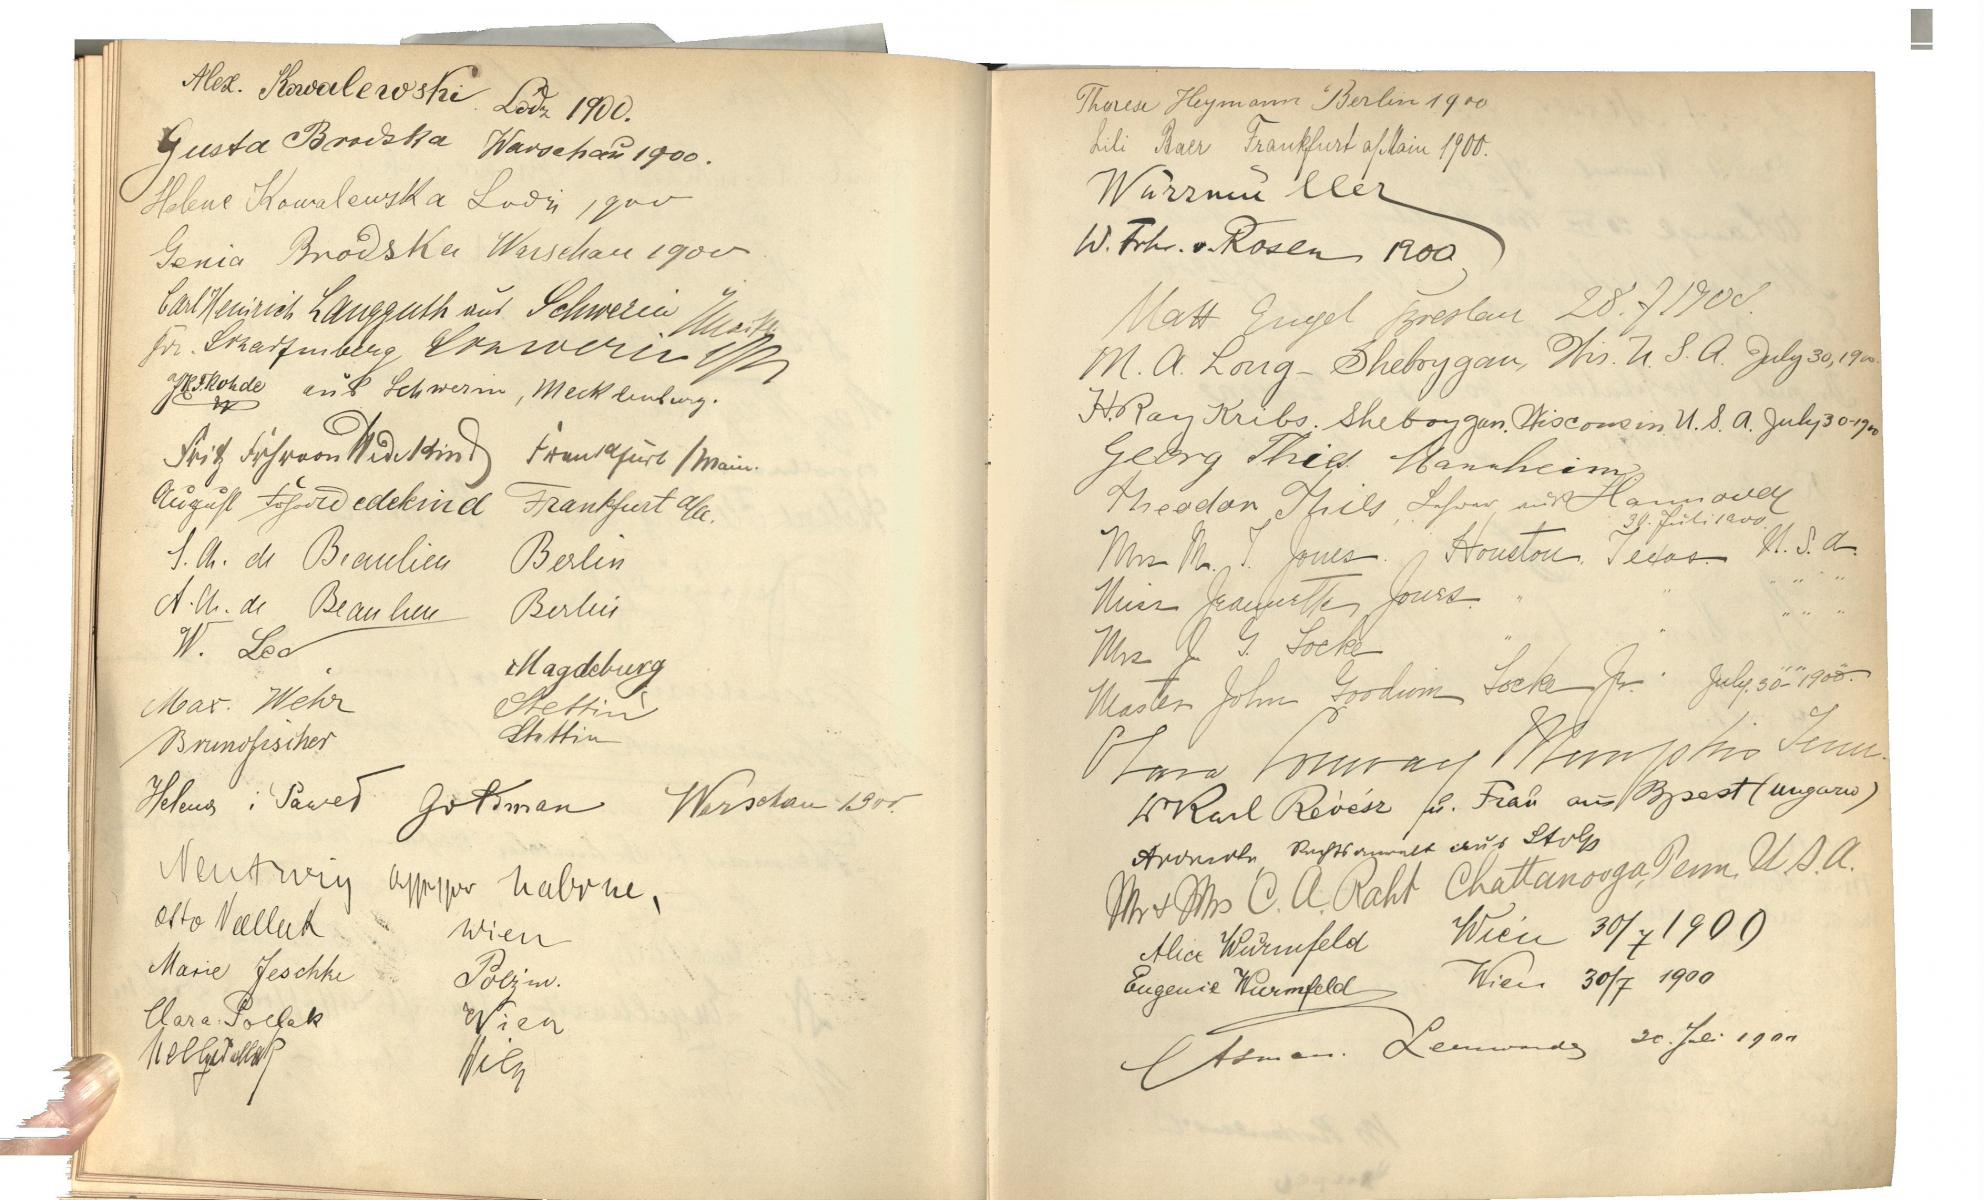 Alex. Kowalewski Lodz 1900.
Gusta Brodska Warschau 1900.
Helene Kowalewska Lodz 1900
Genia Brodska Warschau 1900
Carl Heinrich Langguth aus Schwerin
Fr. Scharfenberg Schwerin
Rohde aus Schwerin, Mecklenburg.
Fritz Frhr von Wedekind Frankfurt /Main.
August Wedekind Frankfurt a/M.
de Beaulieu Berlin
A. Ch. de Beaulieu Berlin
W. Leo
Magdeburg
Max. Wehr Stettin
Bruno Fischer Stettin
Helena i Paweł Goldman Warschau 1900.
Nentwig
Otto Wien
Marie Jeschke Polzin.
Clara Pollak Wien
Nelly Pollak Wien
Therese Heymann Berlin 1900
Lili Baer Frankfurt a/Main 1900.
Würzmüller
W. Frhr. v. Rosen 1900
Matt Engel Breslau 28.7.1900.
M. A. Long - Sheboygan, Wis. U. S. A. July 30, 1900.
H. Ray Kribs. Sheboygan, Wisconsin U. S. A. July 30-1900
Georg Thies Mannheim
Theodor Thies, Lehrer aus Hannover
30. Juli 1900.
Mrs M. T. Jones. Houston, Texas. U. S. A.
Miss Jeannette Jones. " " " " "
Mrs J. G. Locke " " " " "
Master John Goodwin Locke Jr. " July 30" 1900.
Clara Conway Memphis Tenn.
Dr Karl Révész u. Frau aus Bpest (Ungarn)
Rechtsanwalt aus Stolp
Mr & Mrs C. A. Raht Chattanooga, Tenn, U. S. A.
Alice Wurmfeld Wien 30/7 1900
Eugenie Wurmfeld Wien 30/7 1900
Asman. Leeuwarden Juli 1900